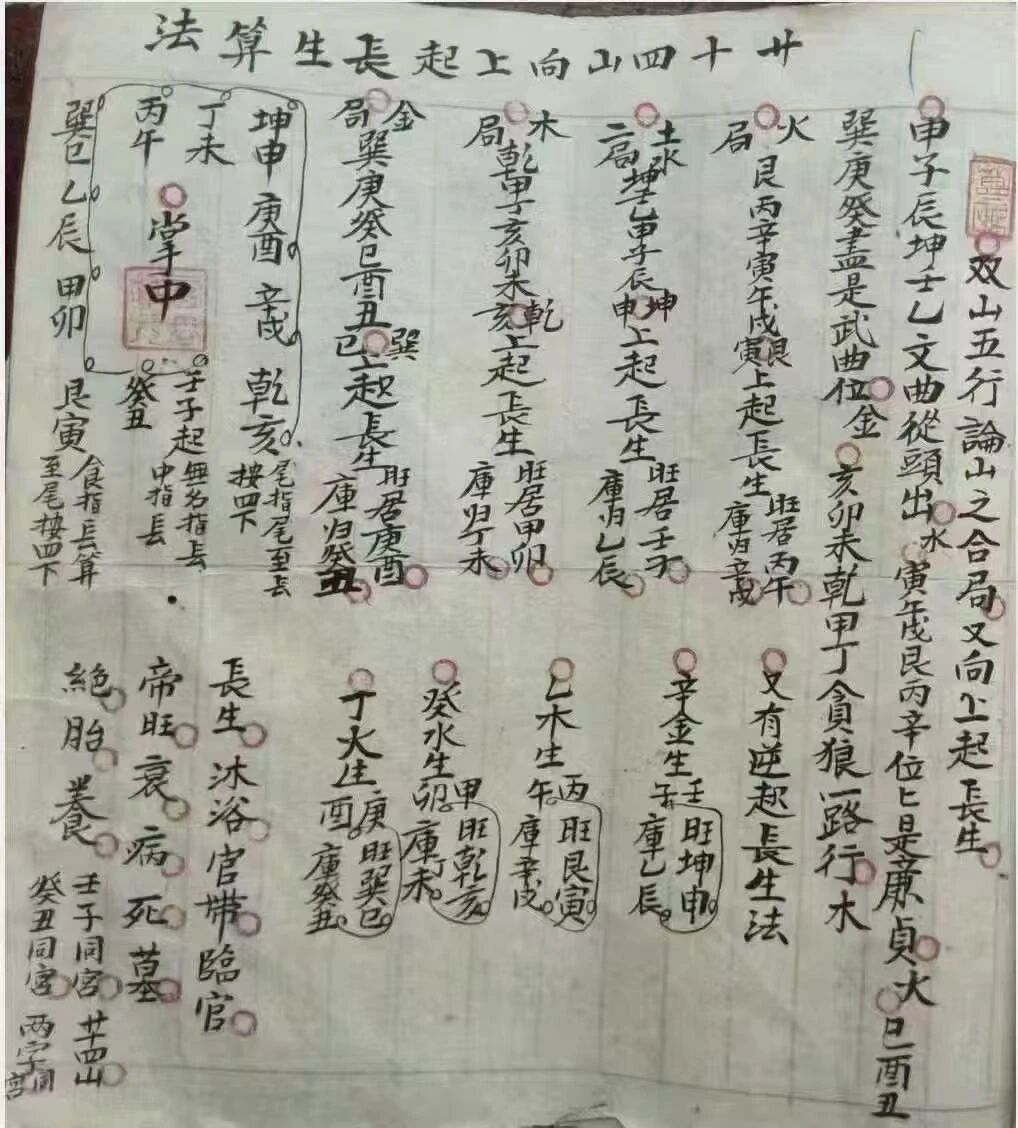 廿十四山向上起長生算法
双山五行論山之合局又向上起長生
申子辰坤壬乙文曲從頭出水寅午戌艮丙辛位上是廉貞火巳酉丑
巽庚癸盡是武曲位金亥卯未乾甲丁貪狼一路行木
火局艮丙辛寅午戌艮寅上起長生旺居丙午庫归辛戌
土水二局坤壬乙申子辰坤申上起長生旺居壬子庫归乙辰
木局乾甲丁亥卯未乾亥上起長生旺居甲卯庫归丁未
金局巽庚癸巳酉丑巽巳上起長生旺居庚酉庫归癸丑
又有逆起長生法
辛金生壬子旺坤申庫乙辰
乙木生丙午旺艮寅庫辛戌
癸水生甲卯旺乾亥庫丁未
丁火生庚酉旺巽巳庫癸丑
坤申庚酉辛戌乾亥尾指尾至長按四下
丁未
丙午
掌中
壬子起無名指長
癸丑中指長
巽巳乙辰甲卯艮寅食指長算至尾按四下
長生沐浴官帶臨官
帝旺衰病死墓
絕胎養
壬子同宮廿四山
癸丑同宮两字同宮